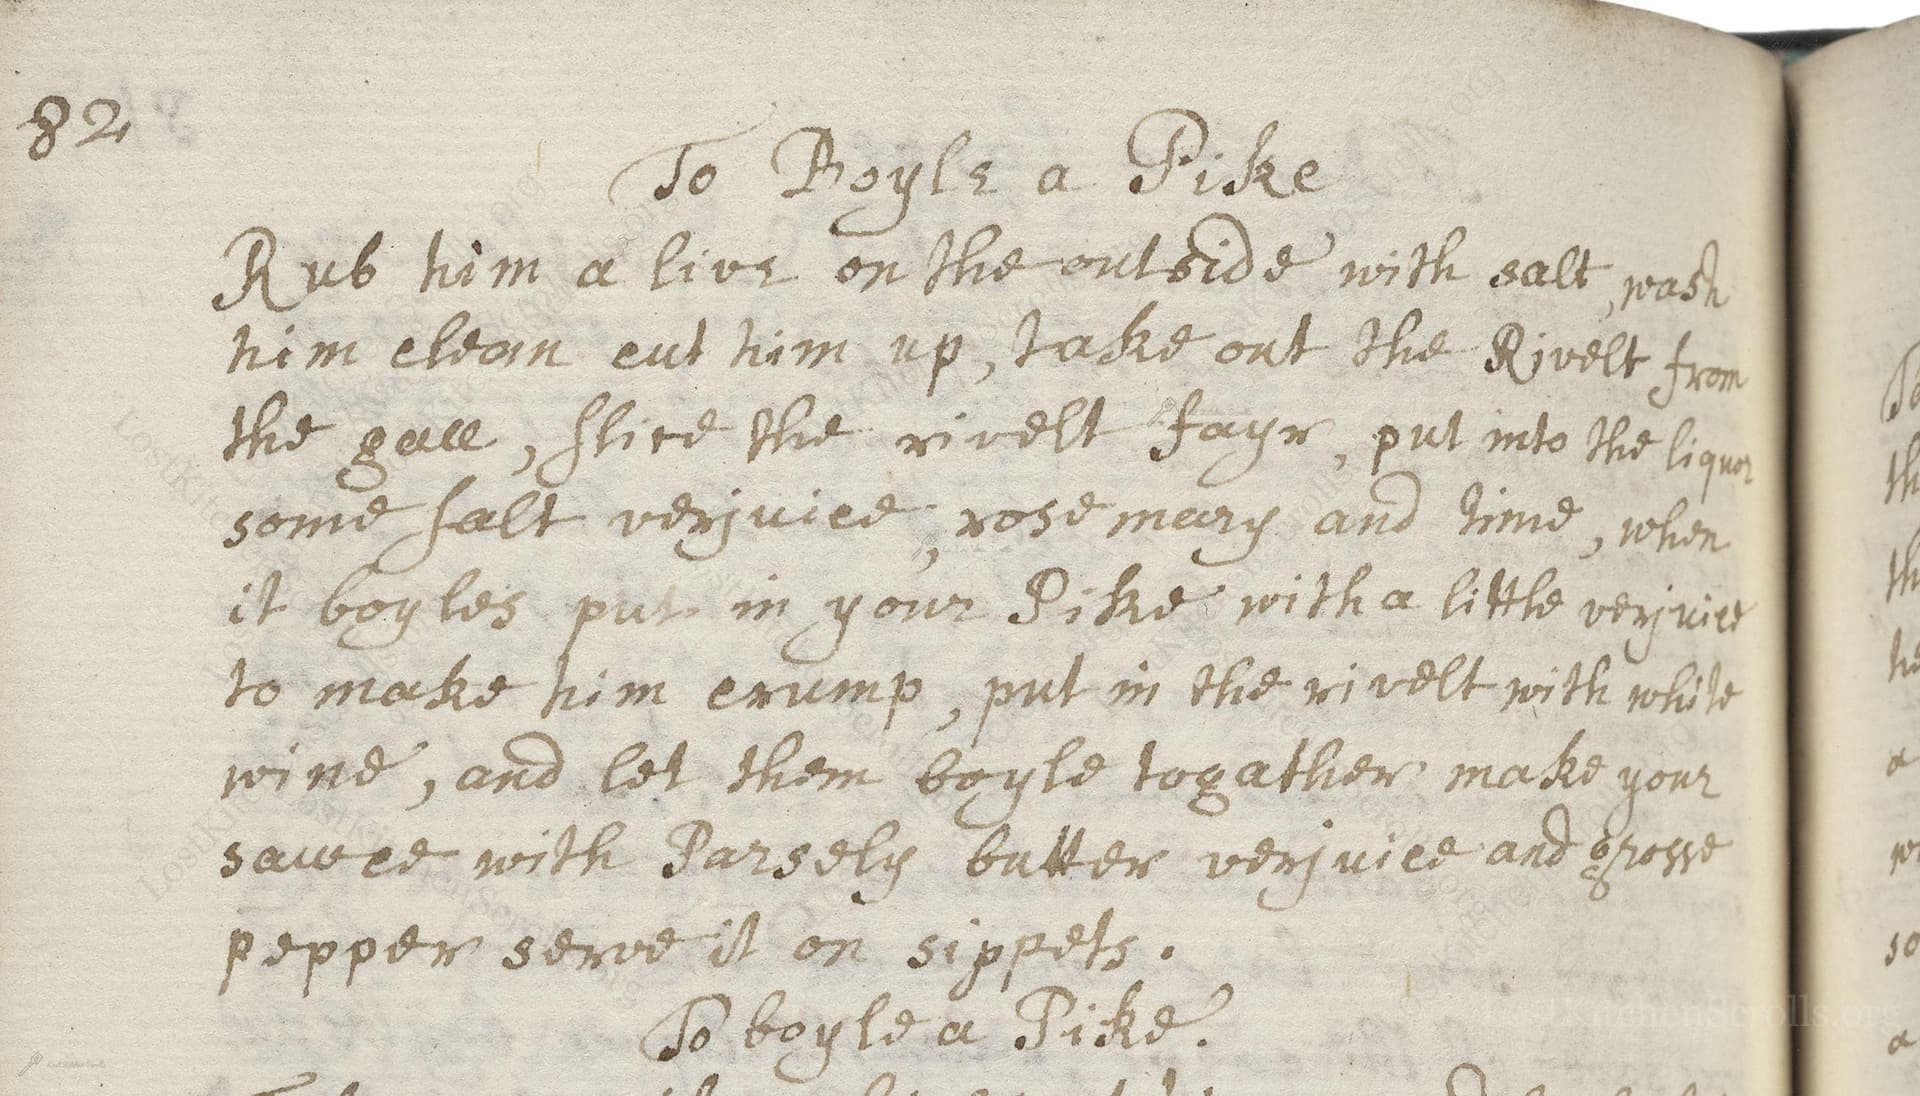 82
To Boyle a Pike
Rub him a live on the outside with salt, wash
him clean cut him up, take out the Rivelt from
the gall, slice the rivelt fayr, put into the liquor
some salt verjuice, rosemary and time, when
it boyles put in your Pike with a little verjuice
to make him crump, put in the rivelt with white
wine, and let them boyle togather make your
sawce with Parsely butter verjuice and grosse
pepper serve it on sippets.
To boyle a Pike.